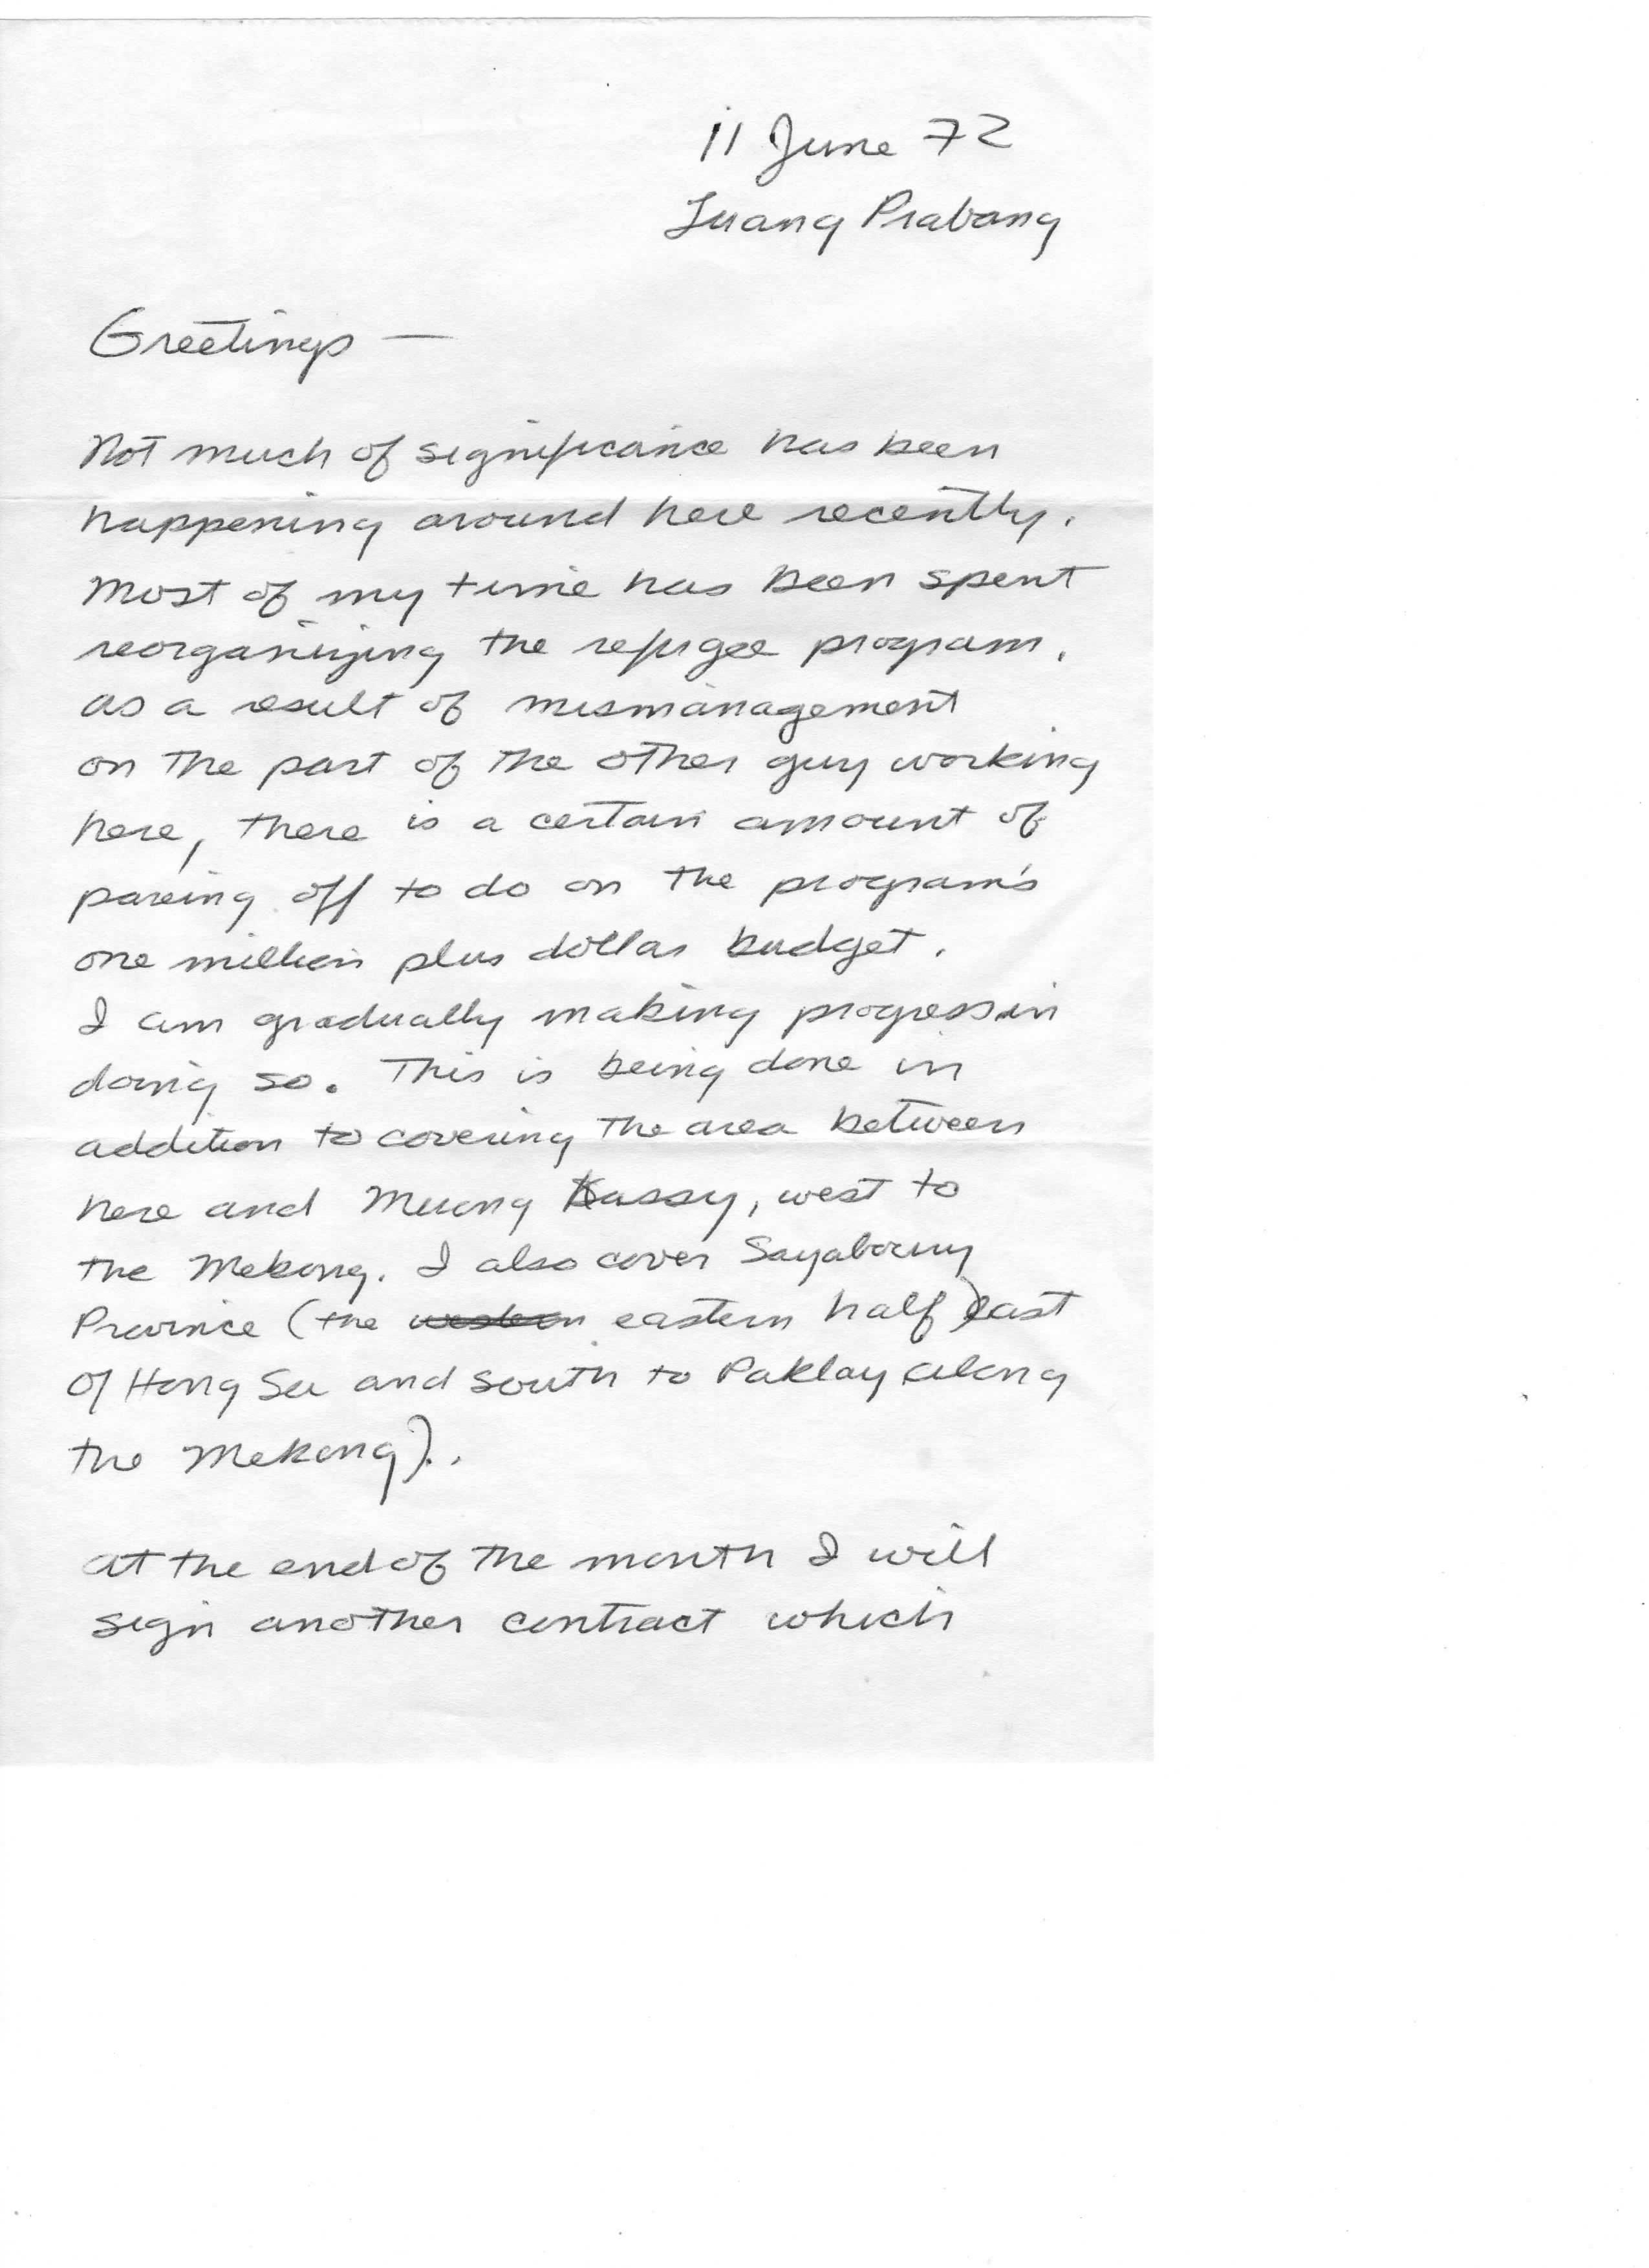 11 June 72
Luang Prabang
Greetings —
Not much of significance has been
happening around here recently.
Most of my time has been spent
reorganizing the refugee program.
As a result of mismanagement
on the part of the other guy working
here, there is a certain amount of
pareing off to do on the program's
one million plus dollar budget.
I am gradually making progress in
doing so. This is being done in
addition to covering the area between
here and Muong Kassy, west to
the Mekong. I also cover Sayaboury
Province (the western eastern half) east
of Hong Sa and south to Paklay along
the Mekong)..
At the end of the month I will
sign another contract which